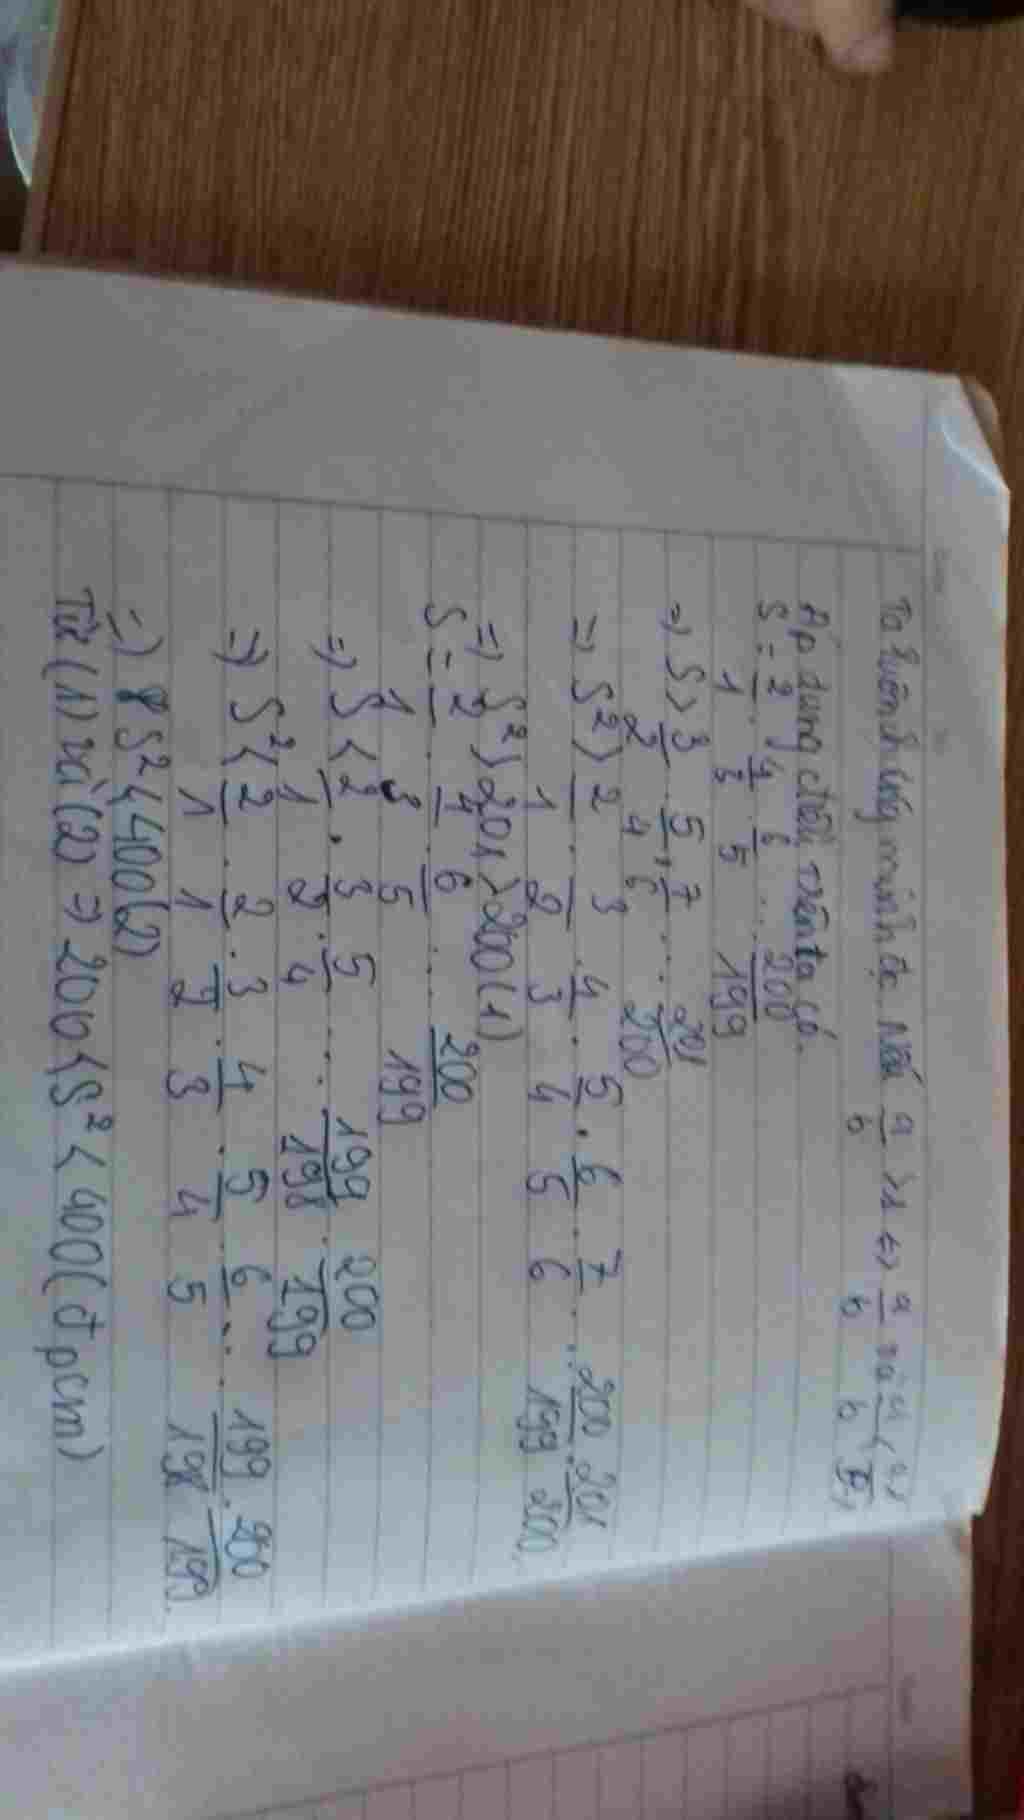 Ta luôn chứng minh đc Nếu a/b >1 <=> a/b
Áp dụng điều trên ta có
S = 2/1 . 4/3 . 6/5 ... 200/199
=> S > 3/2 . 5/4 . 7/6 ... 201/200
=> S² > 2/1 . 3/2 . 4/3 . 5/4 . 6/5 . 7/6 ... 200/199 . 201/200
=> S² > 201 > 200 (1)
S = 2/1 . 4/3 . 6/5 ... 200/199
=> S < 2/1 . 3/2 . 5/4 ... 199/198 . 200/199
=> S² < 2/1 . 2/1 . 3/2 . 4/3 . 5/4 . 6/5 ... 199/198 . 200/199
=> S² < 400 (2)
Từ (1) và (2) => 200 < S² < 400 (đpcm)